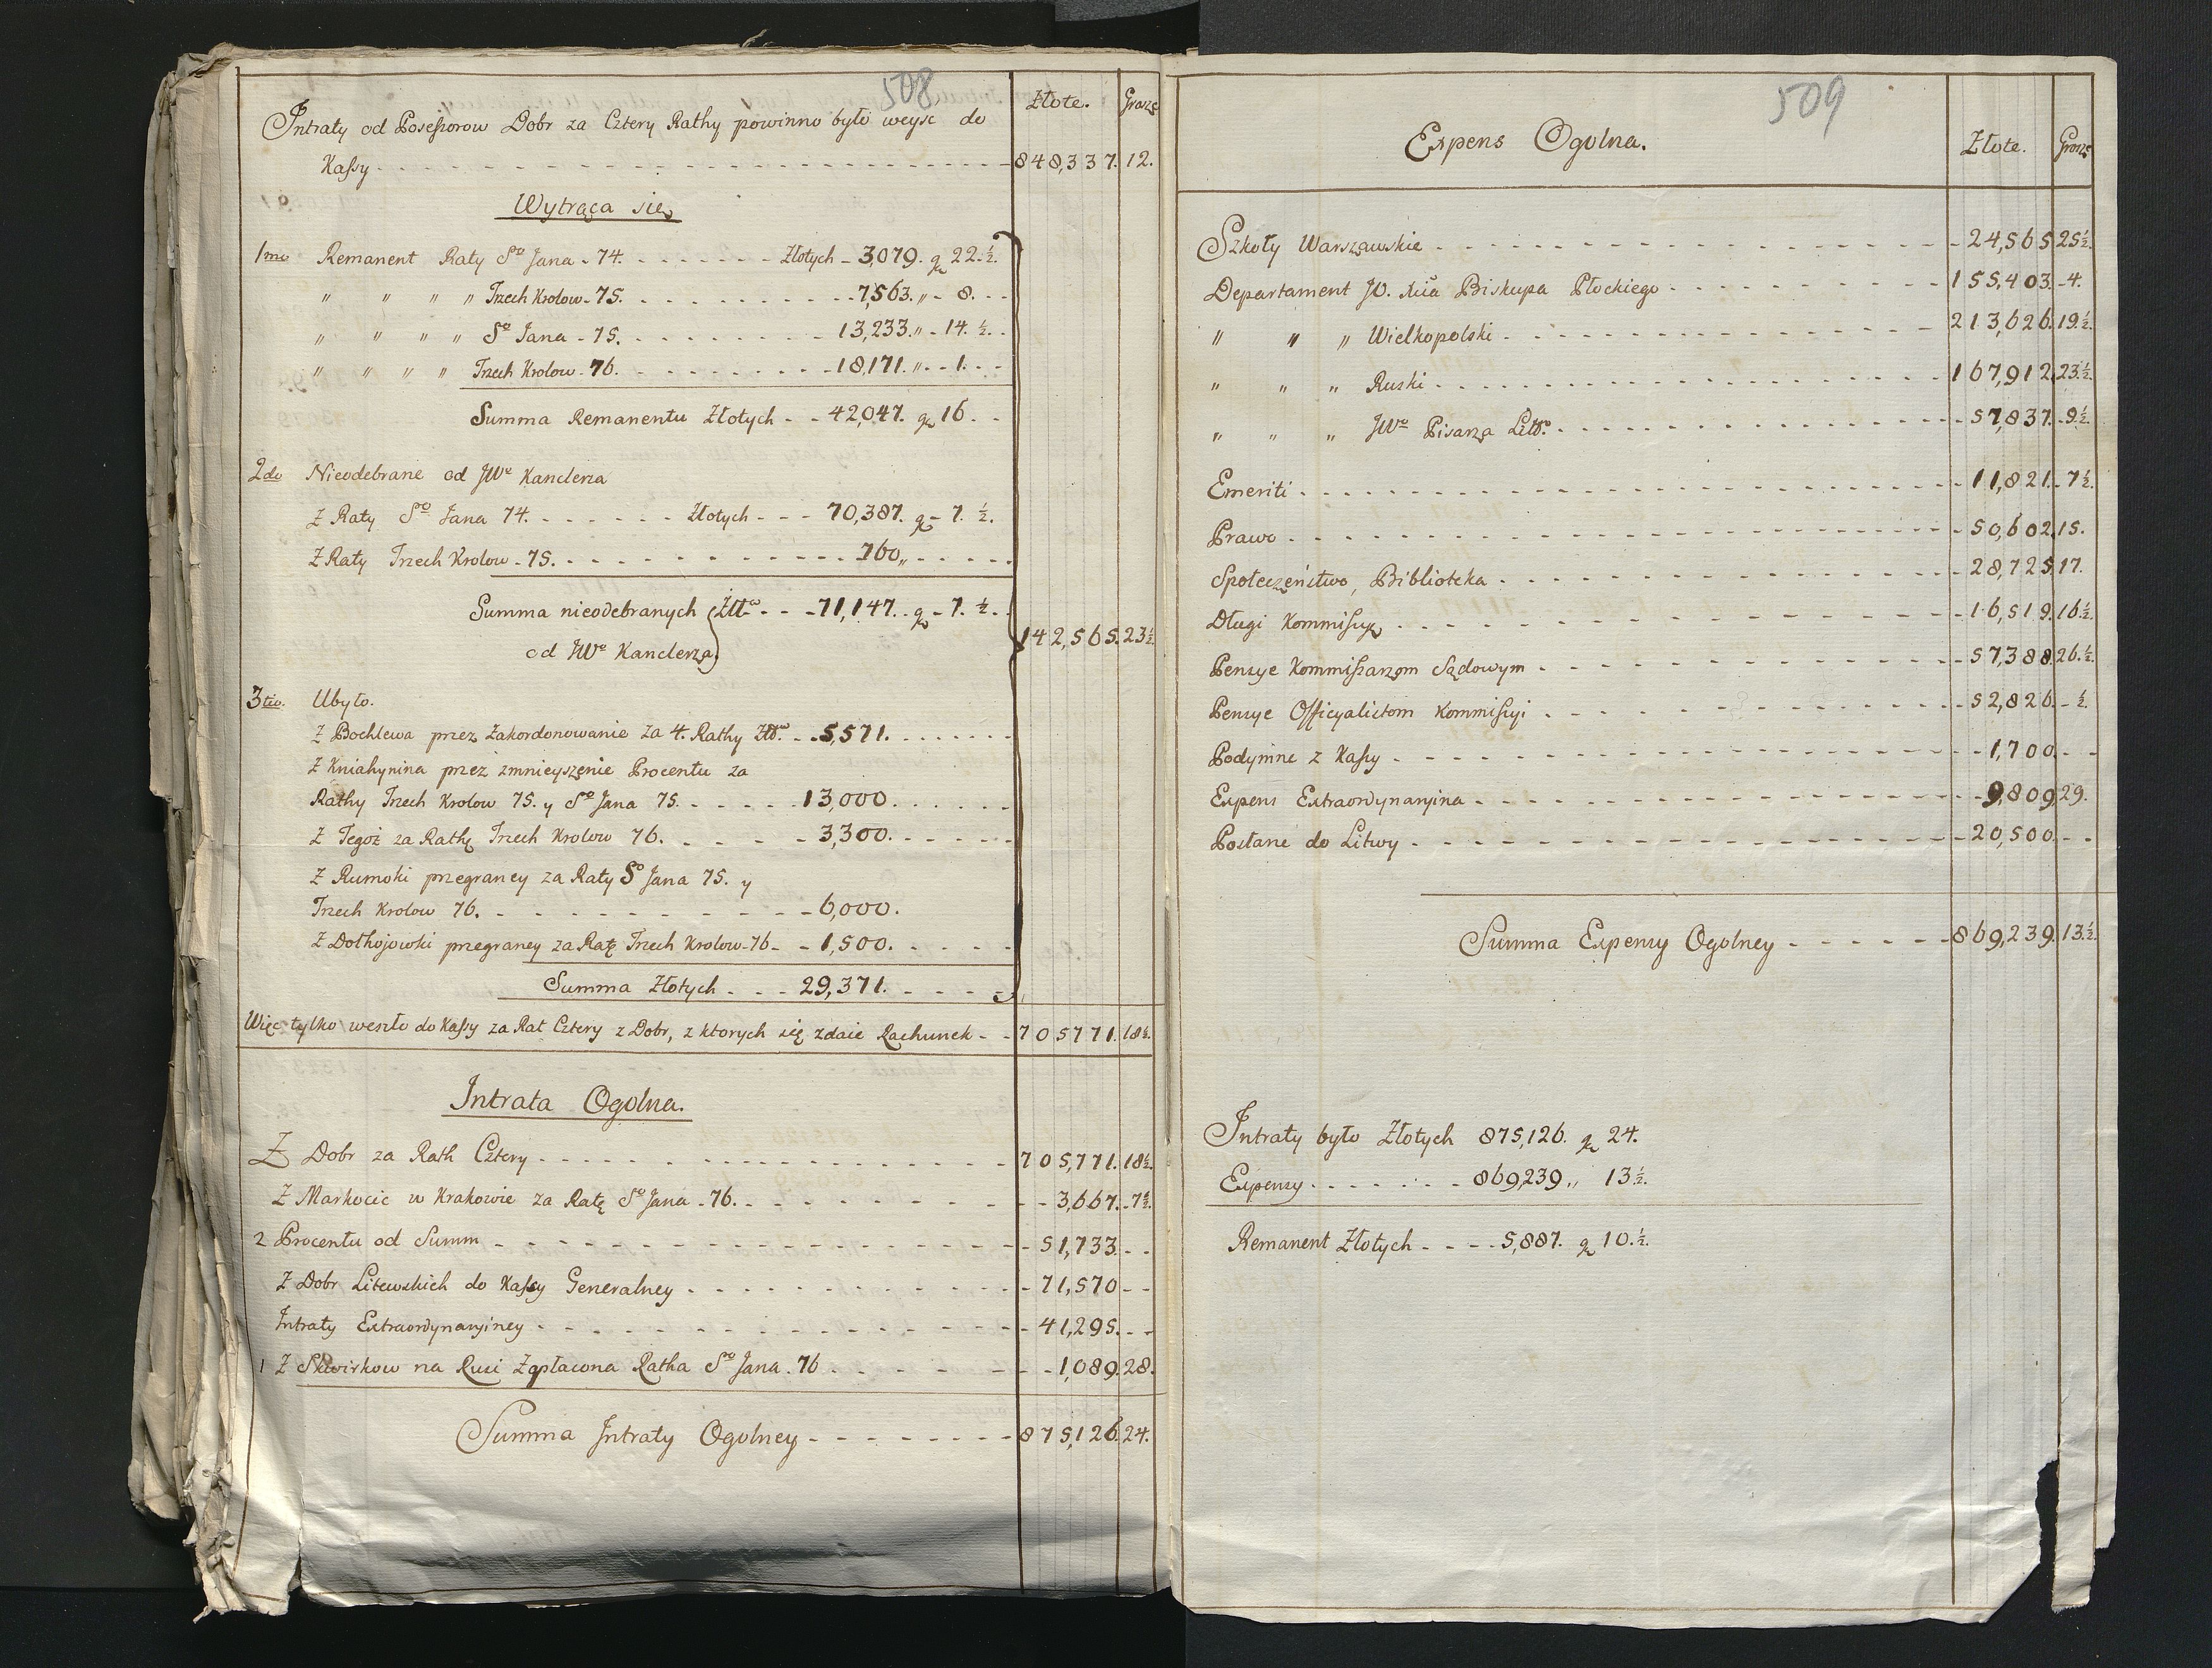 508
Złote. Grosz
Intraty od Possessorow Dobr za Cztery Rathy powinno było weysc do
Kassy - - - 848,337. 12.
Wytrąca się
1mo Remanent Raty So Jana - 74. - - - Złotych - 3,079. gr 22. ½.
" " " " Trzech Krolow - 75. - - - 7,563. " - 8. - -
" " " " So Jana - 75. - - - 13,233. " - 14. ½. -
" " " " Trzech Krolow - 76. - - - 18,171. " - - 1. - -
Summa Remanentu Złotych - - 42,047. gr 16. - -
2do Nieodebrane od JWo Kanclerza
Z Raty So Jana 74. - - - Złotych - - - 70,387. gr - 7. ½.
Z Raty Trzech Krolow - 75. - - - 760 " - - -
Summa nieodebranych Złłch - - - 71,147. gr - 7. ½. -
od JWo Kanclerza. 142,565. 23½
3tio. Ubyło.
Z Bochlewa przez Zakordonowanie za 4. Rathy Złł. - - 5,571. - - -
Z Kniahynina przez zmnieyszenie Procentu za
Rathy Trzech Krolow 75. y So Jana 75. - - - 13,000. - - -
Z Tegoż za Rathę Trzech Krolow 76. - - - 3,300. - - -
Z Rumoki przegraney za Raty So Jana 75. y
Trzech Krolow 76. - - - 6,000.
Z Dołhojowki przegraney za Ratę Trzech Krolow - 76 - - 1,500. - - -
Summa Złotych - - - 29,371. - - -
Więc tylko weszło do Kassy za Rat Cztery z Dobr, z ktorych się zdaie Rachunek - - 705771. 18½.
Intrata Ogolna.
Z Dobr za Rath Cztery - - - 705,771. 18½.
Z Markocic w Krakowie za Ratę So Jana - 76. - - - 3,667. - 7½.
2 Procentu od Summ - - - 51,733. - -
Z Dobr Litewskich do Kassy Generalney - - - 71,570 - -
Intraty Extraordynaryiney - - - 41,295. - -
1 Z Skwirkow na Rusi Zapłacona Ratha So Jana - 76 - - - 1,089. 28.
Summa Intraty Ogolney - - - 875,126. 24.
509
Expens Ogolna. Złote. Grosz
Szkoły Warszawskie - - - 24,565 25½.
Departament JO. Xcia Biskupa Płockiego - - - 155,403. - 4.
" " " Wielkopolski - - - 213,626. 19.½.
" " " Ruski - - - 167,912. 23.½.
" " " JWo Pisarza Litt. - - - 57,837. - 9.½.
Emeriti - - - 11,821. - 7½.
Prawo - - - 50,602. 15.
Społeczeństwo, Biblioteka - - - 28,725. 17.
Długi Kommissyi - - - 16,519. 16.½.
Pensye Kommissarzom Sądowym - - - 57,388. 26.½.
Pensye Officyalistom Kommissyi - - - 52,826. - ½.
Podymne z Kassy - - - 1,700. - -
Expens Extraordynaryina - - - 9,809. 29.
Posłane do Litwy - - - 20,500. - -
Summa Expensy Ogolney - - - 869,239. 13.½.
Intraty było Złotych 875,126. gr 24.
Expensy - - - 869,239 " 13.½.
Remanent Złotych - - - 5,887. gr 10.½.